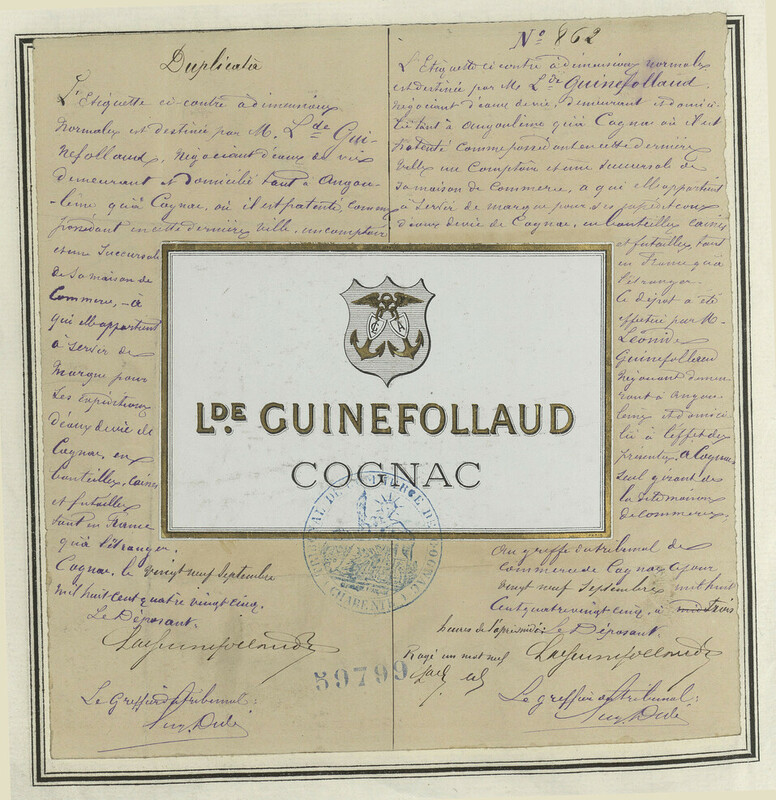 Duplicata
L'Etiquette ci-contre à dimensions
normales est destinée par M. Lde Gui-
nefollaud, négociant d'eaux de vie
demeurant et domicilié tant à Angou-
lême qu'à Cognac, où il est patenté comme
possédant en cette dernière ville, un comptoir
et une Succursale
de sa maison de
Commerce, - à
qui elle appartient
à servir de
marque pour
ses expéditions
d'eaux de vie de
Cognac, en
bouteilles, caisses
et futailles
tant en France
qu'à l'étranger.
Cognac, le vingt neuf Septembre
mil huit cent quatre vingt cinq.
Le Déposant.
Lde Guinefollaud
Le Greffier du tribunal:
No 862
L'Etiquette ci contre à dimensions normales
est destinée par M Lde Guinefollaud.
négociant d'eaux de vie, demeurant et domici-
lié tant à Angoulême qu'à Cognac où il est
patenté comme possédant en cette dernière
ville un Comptoir et une succursale de
sa maison de commerce, a qui elle appartient
à servir de marque pour ses expéditions
d'eaux de vie de Cognac, en bouteilles caisses
et futailles, tant
en France qu'à
l'étranger.
Ce dépôt a été
effectué par M.
Léonide
Guinefollaud
négociant demeu-
rant à Angou-
lême et domici-
lié à l'effet des
présentes à Cognac,
seul gérant des
la dite maison
de commerce.
Au greffe du tribunal de
Commerce de Cognac ce jour
vingt neuf Septembre mil huit
Cent quatre vingt cinq, à trois
heures de l'après midi: Le Déposant.
Rayé un mot nul
Lde Guinefollaud
Le greffier du tribunal:
C A
LDE. GUINEFOLLAUD
COGNAC
TRIBUNAL DE COMMERCE DE COGNAC
CHARENTE
59799